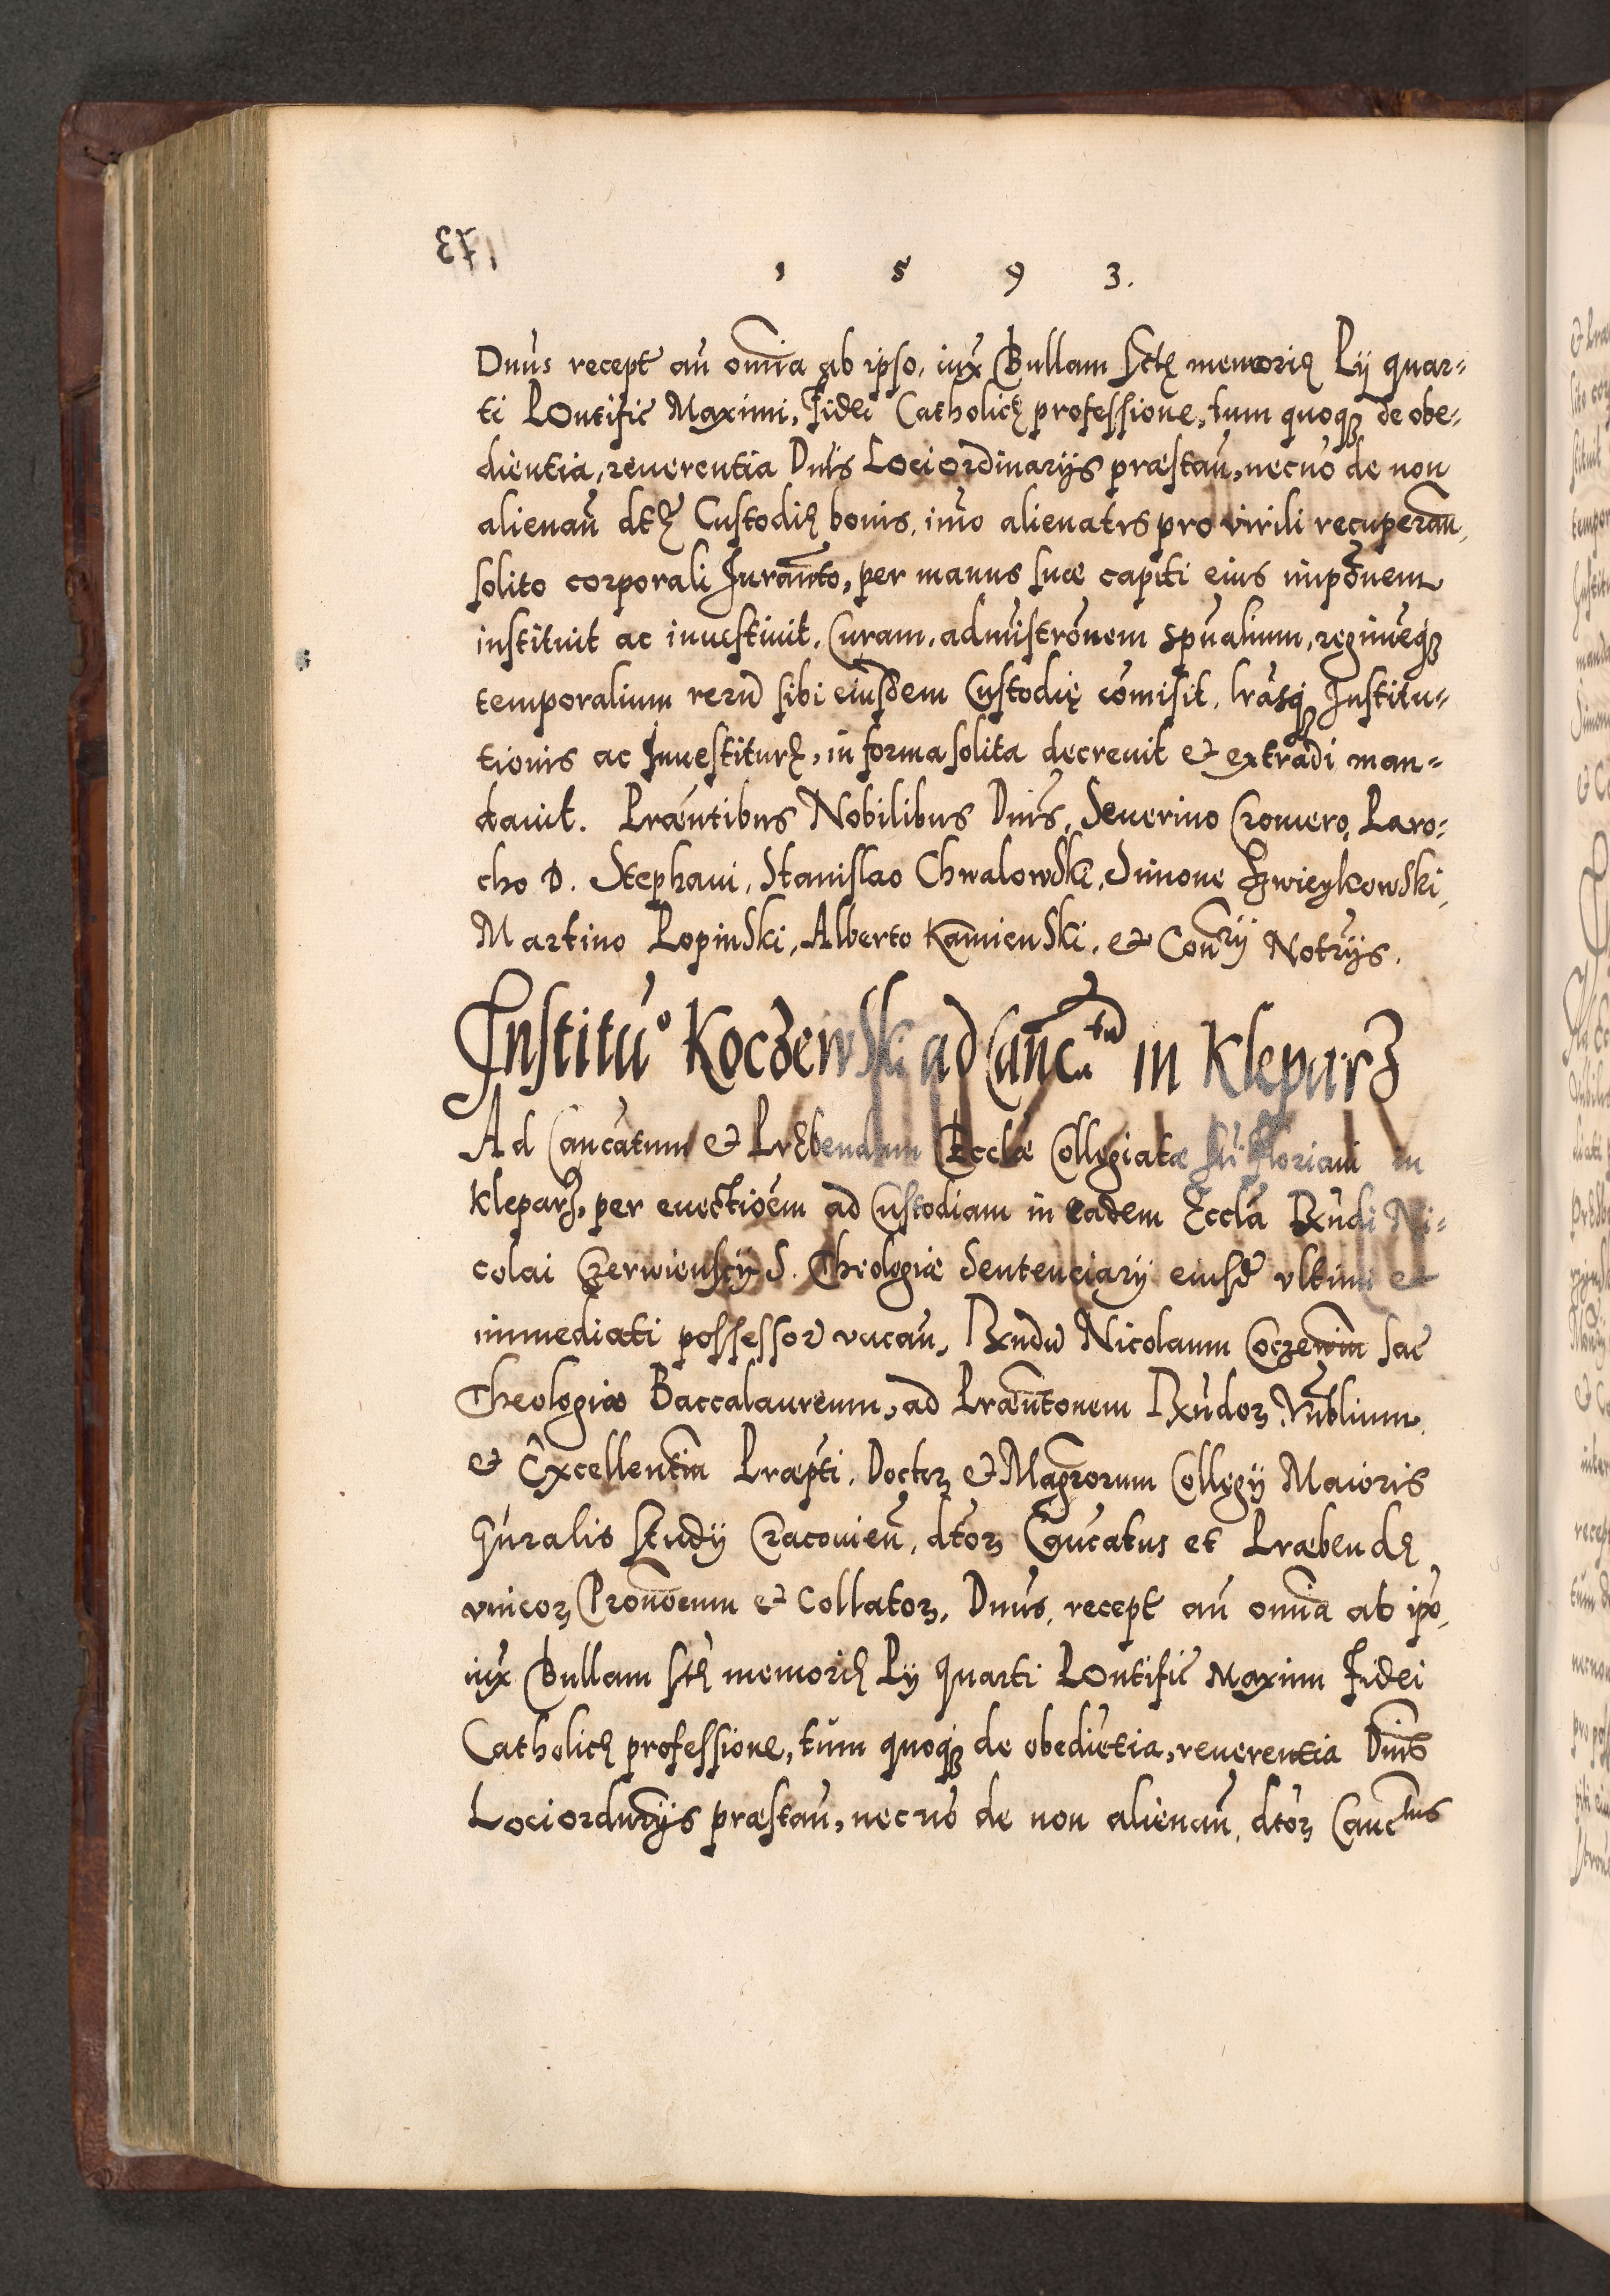 1593.
Dnus recept an omnia ab ipso, iux Bullam Sctę memorię Py quar=
ti Pontific Maximi, Fidei Catholicę professione, tum quoq de obe=
dientia, reuerentia Dnis Lociordinarijs præstan, necno de non
alienan dtę Custodię bonis, imo alienatis pro virili recuperan,
solito corporali Juranto, per manus suæ capiti eius imponem
instituit ac inuestiuit. Curam, admistronem spualium, regimeq
temporalium reru sibi eiusdem Custodię comisit, lrasq Institu=
tionis ac Inuestiturę, in forma solita decreuit et extradi man=
dauit. Præntibus Nobilibus Dnis, Seuerino Cromero, Paro=
cho D. Stephani, Stanislao Chwalowski, Simone
Martino Popinski, Alberto Kamienski, et Conrÿ Notrijs.
Institu° Koczewski ad Canc tu in Kleparz
Ad Cancatum et Prębendam Eccle Collegiatæ Sti Floriani in
Kleparz, per euectioem ad Custodiam in eadem Eccla Rndi Ni=
colai Czerwienscij S. Theologiæ Sentenciarij eiusd vltimi et
immediati possessor vacan, Rndu Nicolaum Coczewin sac
Theologiæ Baccalaureum, ad Præntonem Rndoz Vnblium
et Excellentim Præpti, Doctoz et Magrorum Collegij Maioris
Gnralis Studij Cracouien, dtoz Cancatus et Præbendę
vnicoz Pronoum et Collatoz, Dnus, recept an omnia ab ipo,
iux Bullam Stę memorię Py Quarti Pontific Maximi Fidei
Catholicę professione, tum quoq de obedietia, reuerentia Dnis
Lociordinrijs præstan, necno de non alienan, dtoz Canctus